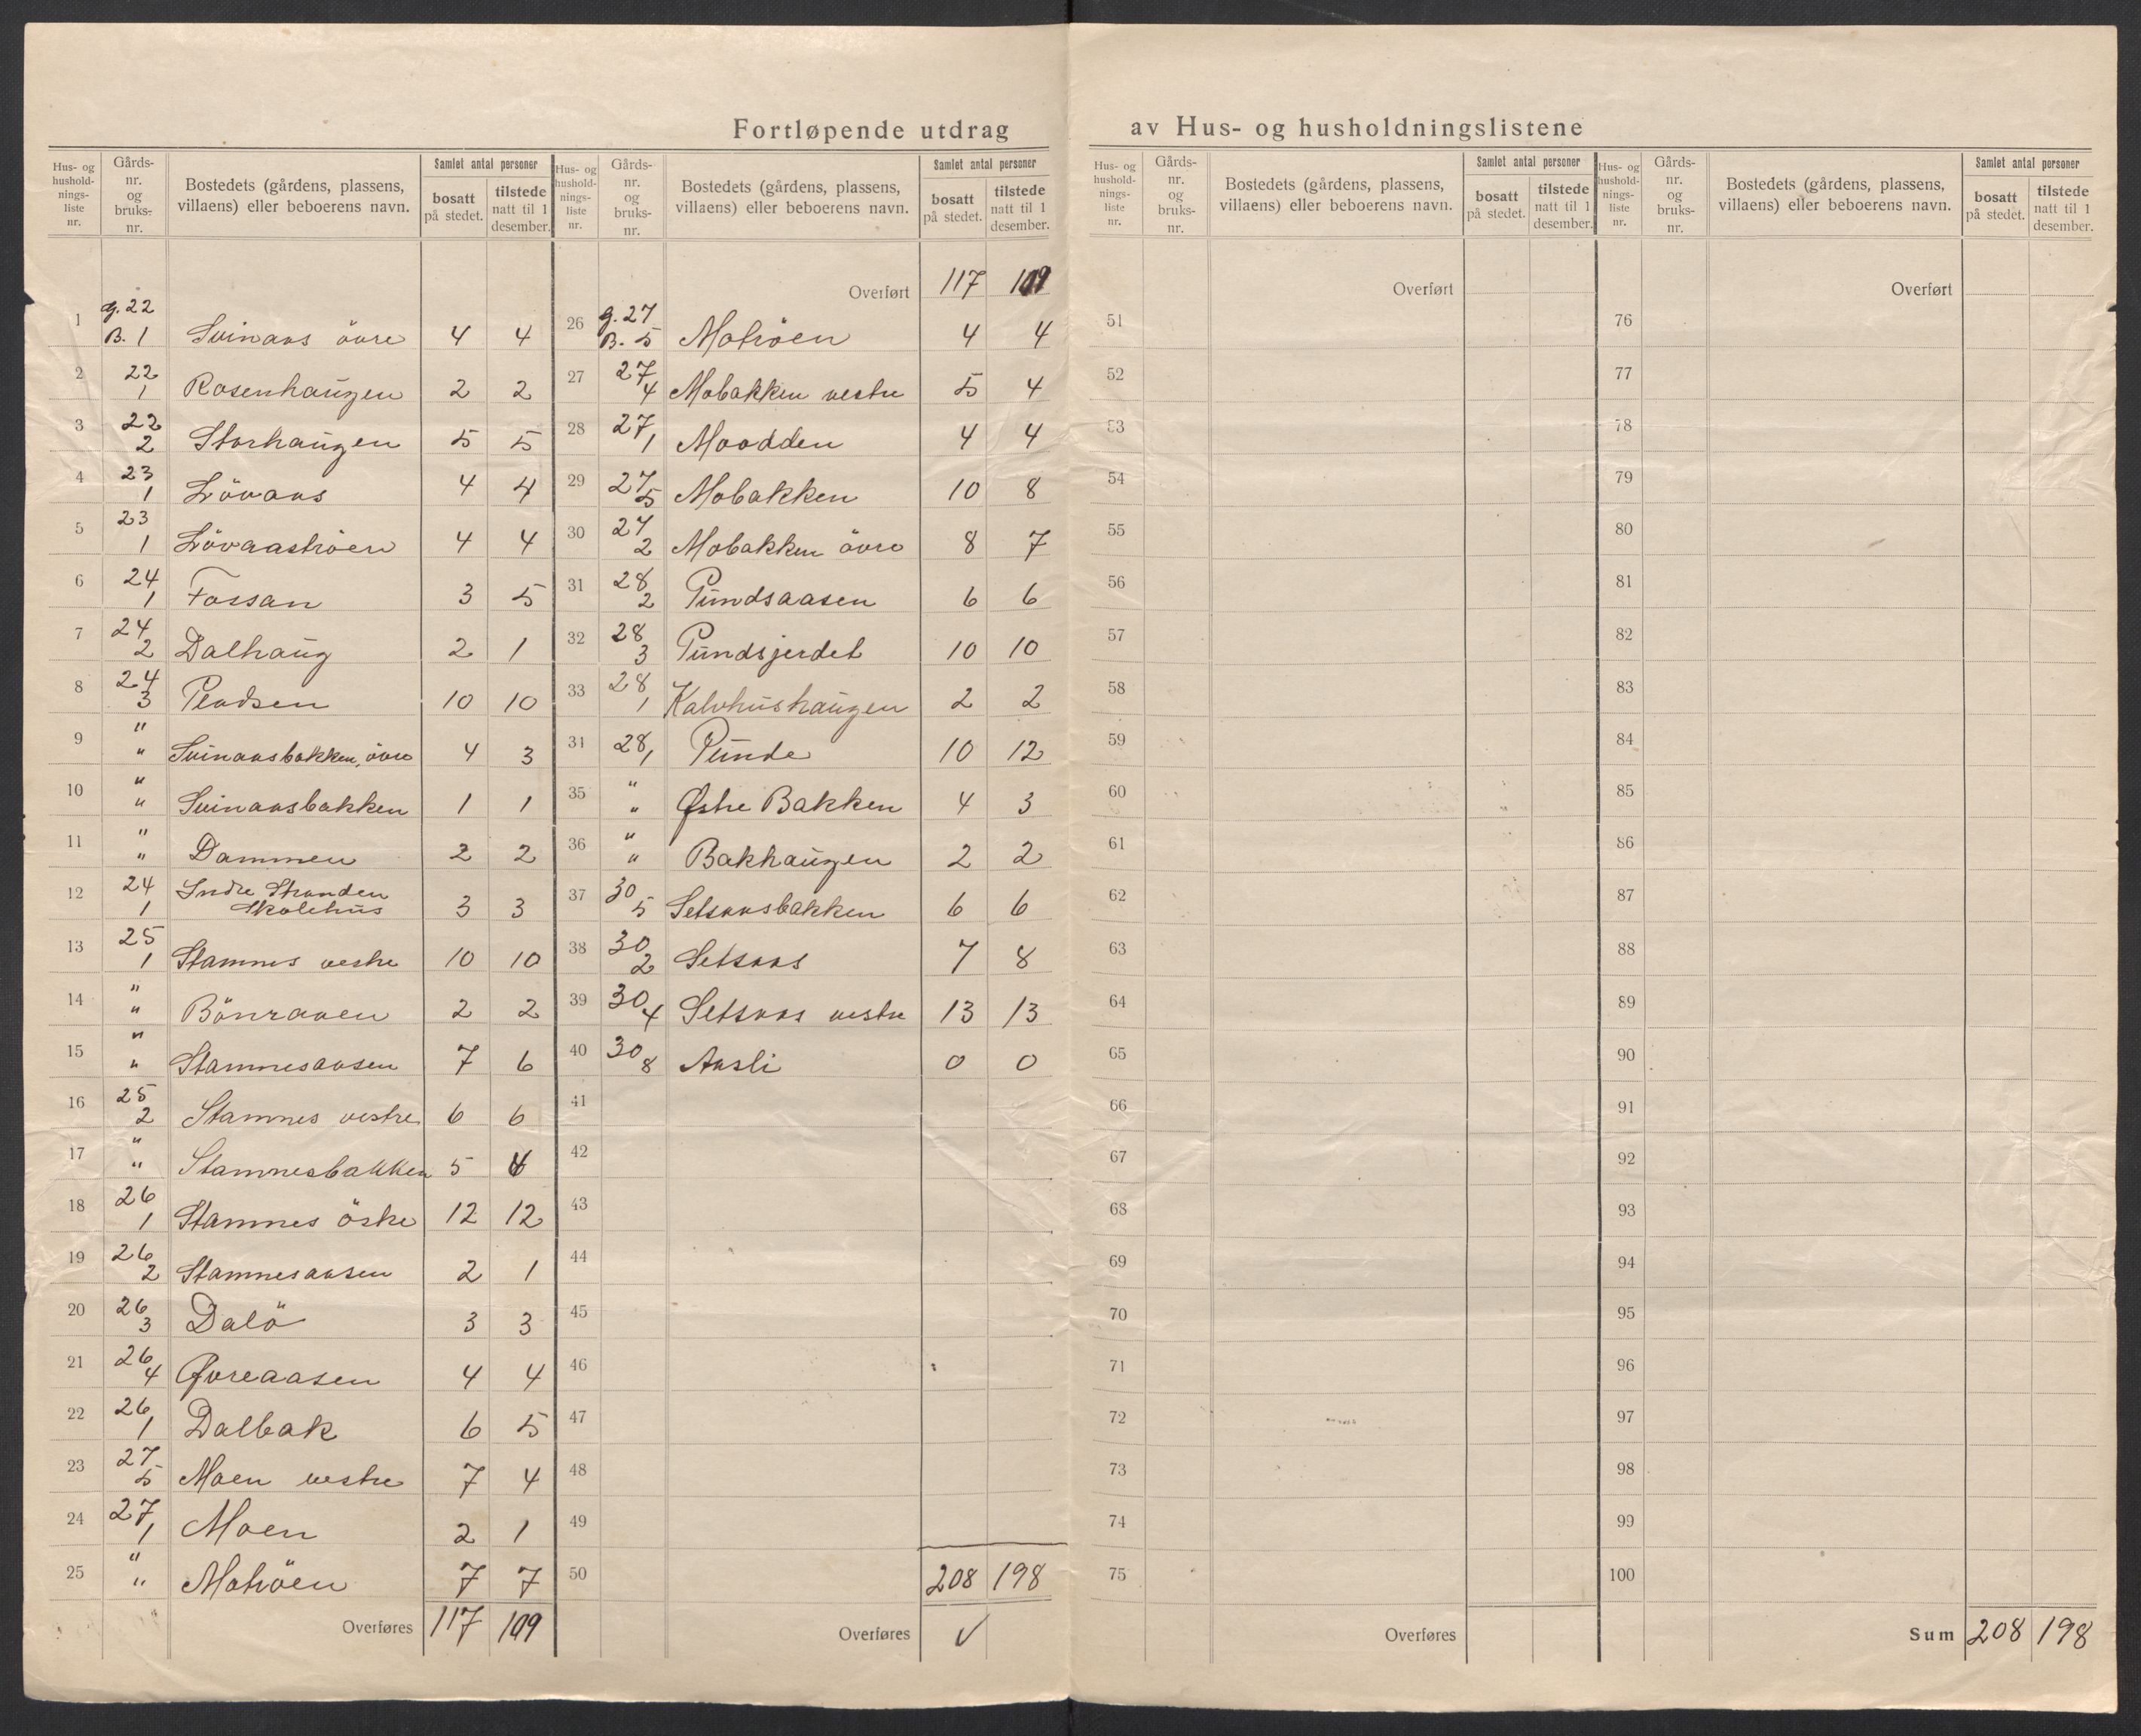 Fortløpende utdrag av Hus- og husholdningslistene
Hus- og hushold-nings-liste nr. Gårds-nr. og bruks-nr. Bostedets (gårdens, plassens, villaens) eller beboerens navn. Samlet antal personer bosatt på stedet. tilstede natt til 1 desember.
1 g. 22 B. 1 Svinaas övre 4 4
2 22 1 Rosenhaugen 2 2
3 22 2 Storhaugen 5 5
4 23 1 Lövaas 4 4
5 23 1 Lövaaströen 4 4
6 24 1 Fossan 3 5
7 24 2 Dalhaug 2 1
8 24 3 Pladsen 10 10
9 " " Svinaasbakken, övre 4 3
10 " " Svinaasbakken 1 1
11 " " Dammen 2 2
12 24 1 Indre Stranden
Skolehus 3 3
13 25 1 Stamnes vestre 10 10
14 " " Bönraaen 2 2
15 " " Stamnesaasen 7 6
16 25 2 Stamnes vestre 6 6
17 " " Stamnesbakken 5 4
18 26 1 Stamnes östre 12 12
19 26 2 Stamnesaasen 2 1
20 26 3 Dalö 3 3
21 26 4 Øvreaasen 4 4
22 26 1 Dalbak 6 5
23 27 5 Moen vestre 7 4
24 27 1 Moen 2 1
25 " " Motröen 7 7
Overføres 117 109
Hus- og hushold-nings-liste nr. Gårds-nr. og bruks-nr. Bostedets (gårdens, plassens, villaens) eller beboerens navn. Samlet antal personer bosatt på stedet. tilstede natt til 1 desember.
Overført 117 109
26 g. 27 B. 5 Motröen 4 4
27 27 4 Mobakken vestre 5 4
28 27 1 Moodden 4 4
29 27 5 Mobakken 10 8
30 27 2 Mobakken övre 8 7
31 28 2 Pundsaasen 6 6
32 28 3 Pundsjerdet 10 10
33 28 1 Kalvhushaugen 2 2
34 28 1 Punde 10 12
35 " " Østre Bakken 4 3
36 " " Bakhaugen 2 2
37 30 5 Setsaasbakken 6 6
38 30 2 Setsaas 7 8
39 30 4 Setsaas vestre 13 13
40 30 8 Aasli 0 0
41
42
43
44
45
46
47
48
49
50 208 198
Overføres √
Hus- og hushold-nings-liste nr. Gårds-nr. og bruks-nr. Bostedets (gårdens, plassens, villaens) eller beboerens navn. Samlet antal personer bosatt på stedet. tilstede natt til 1 desember.
Overført
51
52
53
54
55
56
57
58
59
60
61
62
63
64
65
66
67
68
69
70
71
72
73
74
75
Overføres
Hus- og hushold-nings-liste nr. Gårds-nr. og bruks-nr. Bostedets (gårdens, plassens, villaens) eller beboerens navn. Samlet antal personer bosatt på stedet. tilstede natt til 1 desember.
Overført
76
77
78
79
80
81
82
83
84
85
86
87
88
89
90
91
92
93
94
95
96
97
98
99
100
Sum 208 198